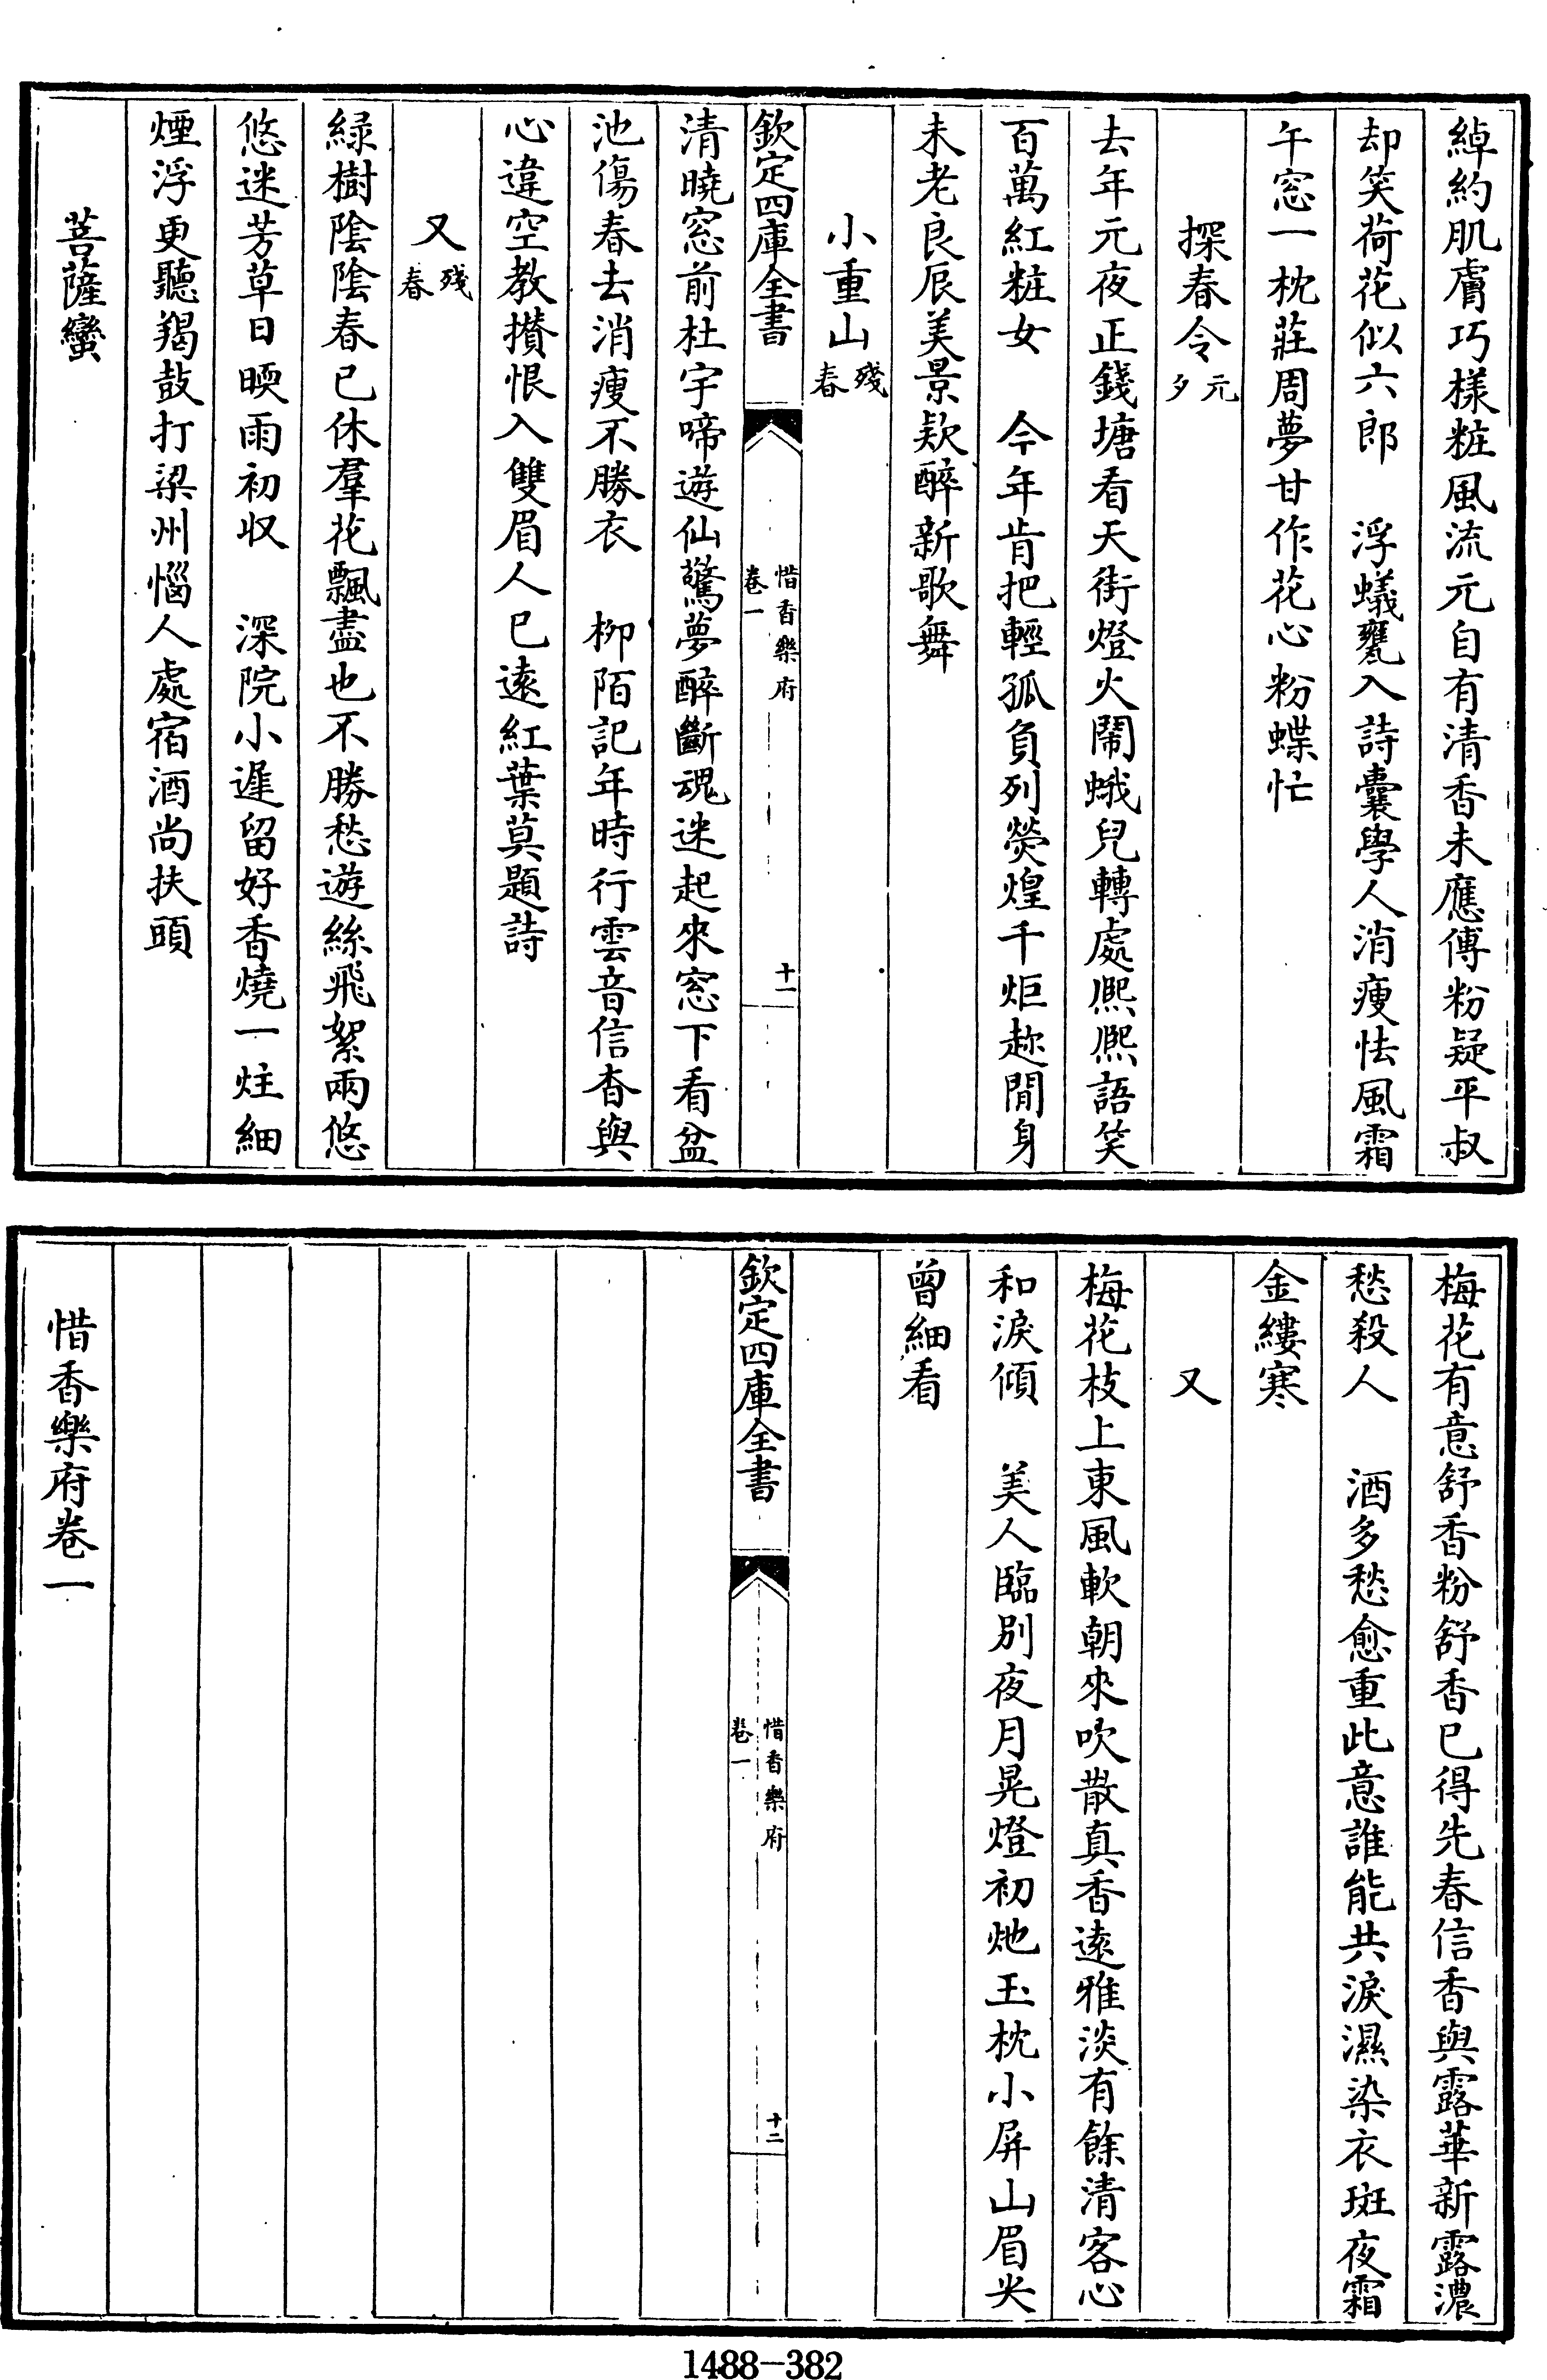 綽約肌膚巧樣粧風流元自有清香未應傅粉疑平叔
却笑荷花似六郎　浮蟻甕入詩囊學人消瘦怯風霜
午窓一枕莊周夢甘作花心粉蝶忙
探春令元夕
去年元夜正錢塘看天街燈火鬧蛾兒轉處熈熈語笑
百萬紅粧女　今年肯把輕孤負列熒煌千炬趂閒身
未老良辰美景欵醉新歌舞
小重山殘春
欽定四庫全書
惜香樂府
卷一
十一
清曉窓前杜宇啼遊仙驚夢醉斷魂迷起來窓下看盆
池傷春去消瘦不勝衣　柳陌記年時行雲音信杳與
心違空教攢恨入雙眉人已遠紅葉莫題詩
又殘春
緑樹陰陰春已休羣花飄盡也不勝愁遊絲飛絮兩悠
悠迷芳草日暎雨初収　深院小遲留好香燒一炷細
煙浮更聽羯鼓打梁州惱人處宿酒尚扶頭
菩薩蠻
梅花有意舒香粉舒香已得先春信香與露華新露濃
愁殺人　酒多愁愈重此意誰能共淚濕染衣斑夜霜
金縷寒
又
梅花枝上東風軟朝來吹散真香遠雅淡有餘清客心
和淚傾　美人臨別夜月晃燈初灺玉枕小屏山眉尖
曾細看
欽定四庫全書
惜香樂府
卷一
十二
惜香樂府卷一
1488-382